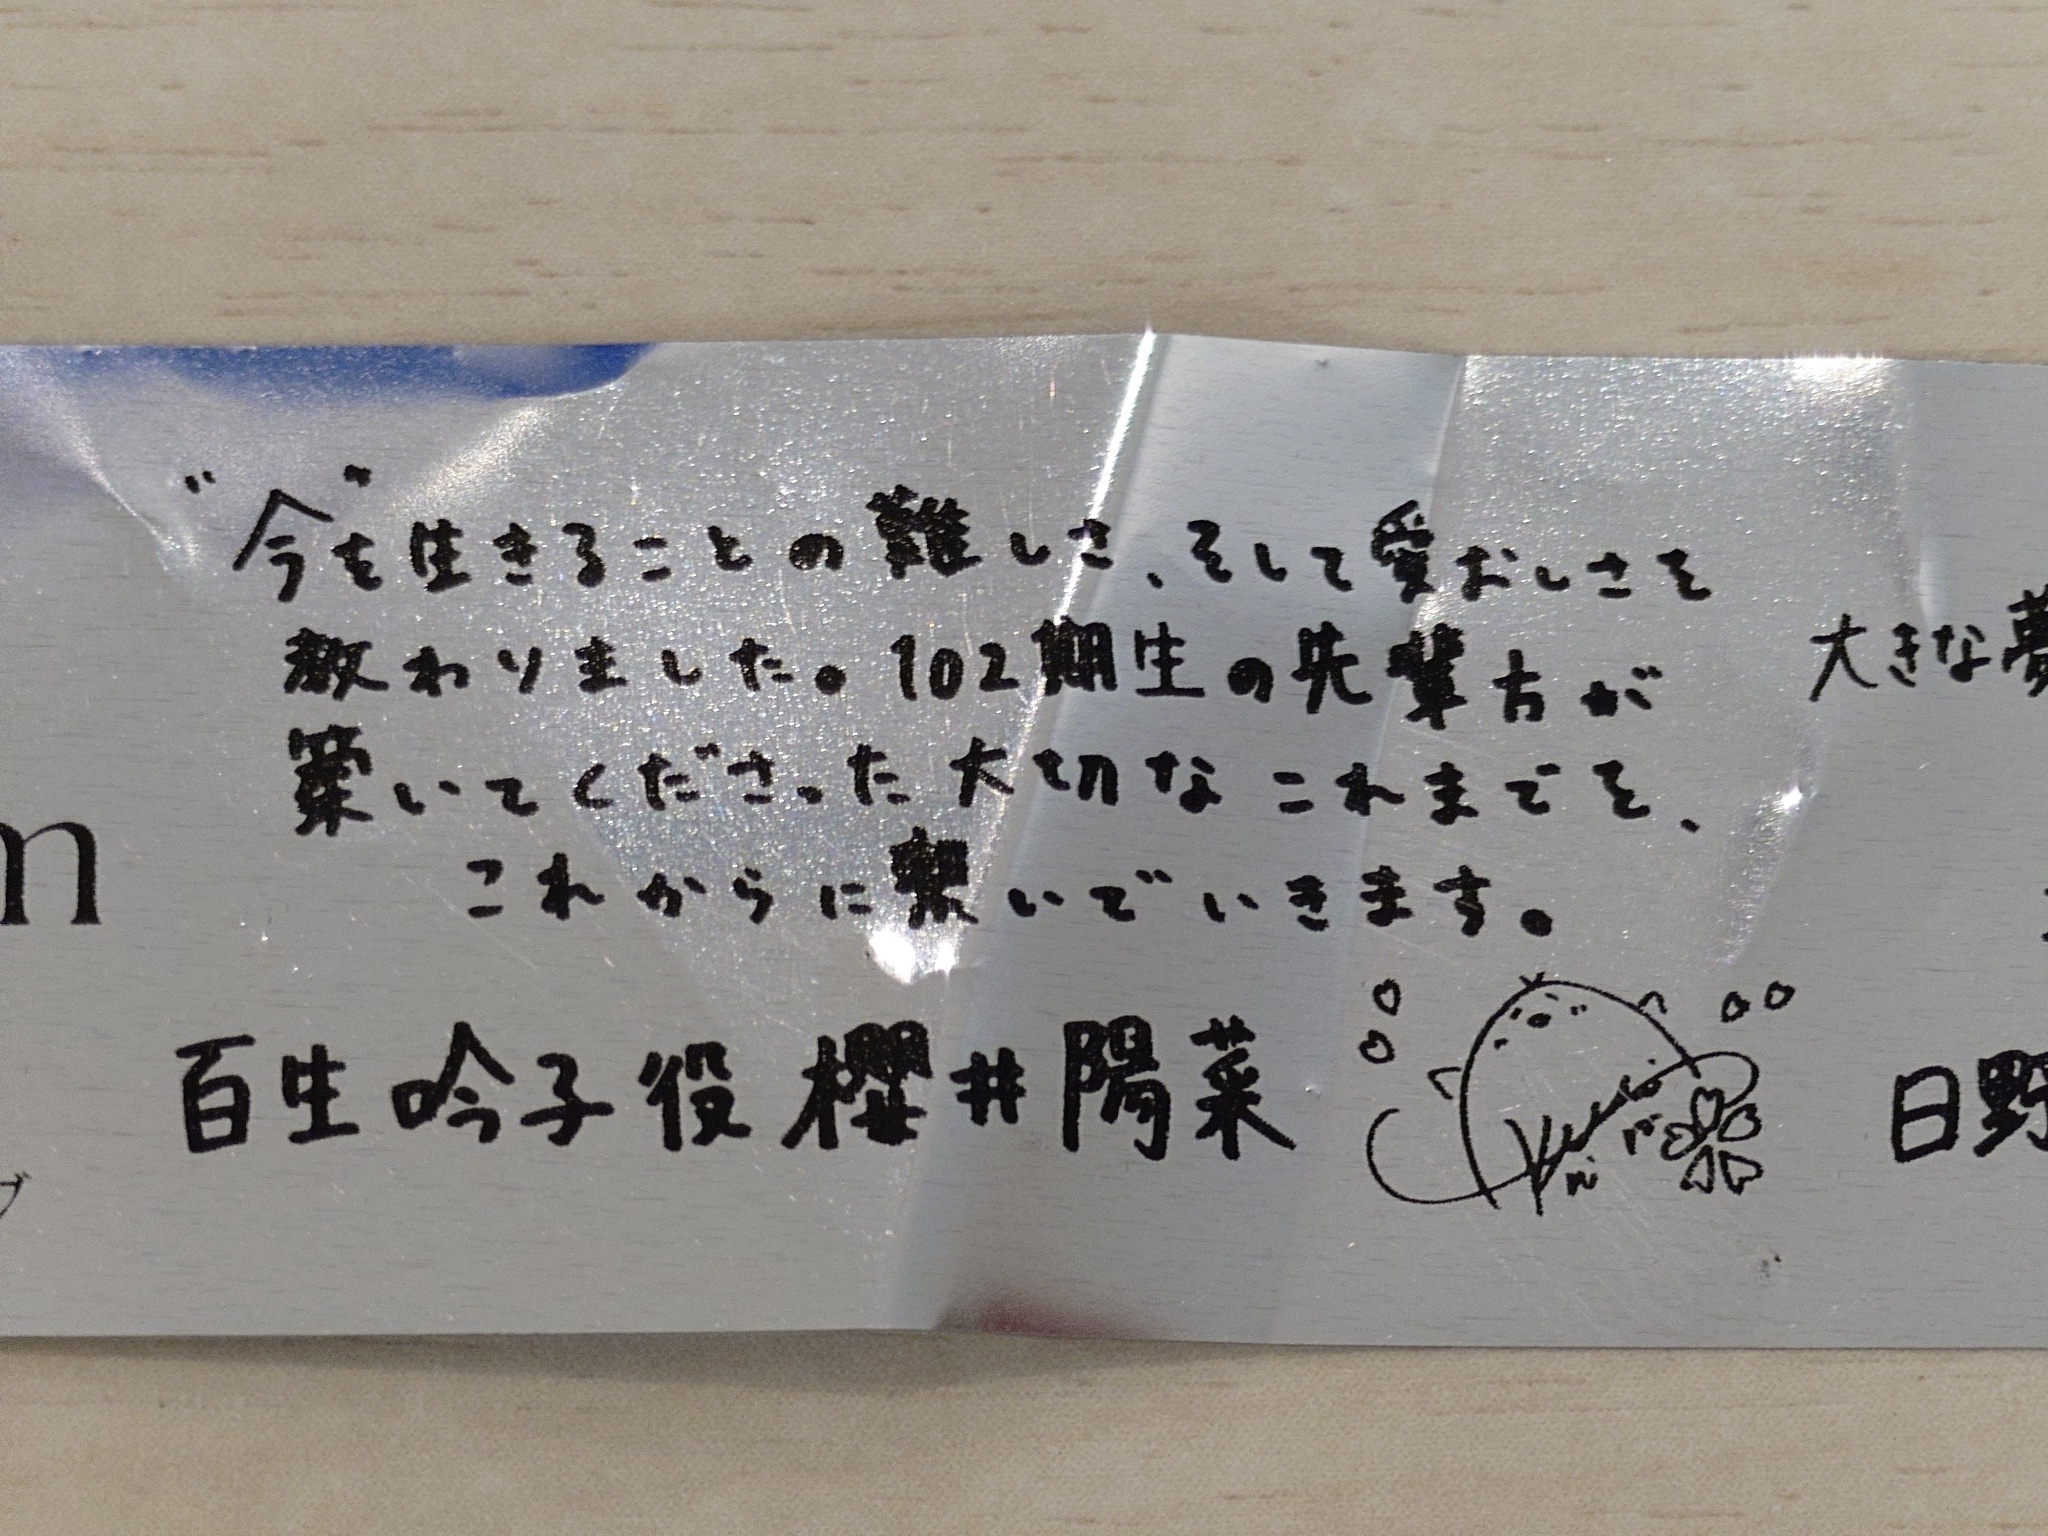 "今"を生きることの難しさ、そして愛おしさを
教わりました。102期生の先輩方が
築いてくださった大切なこれまでを、
これからに繋いでいきます。
百生吟子役 櫻井陽菜
大きな夢
日野
m